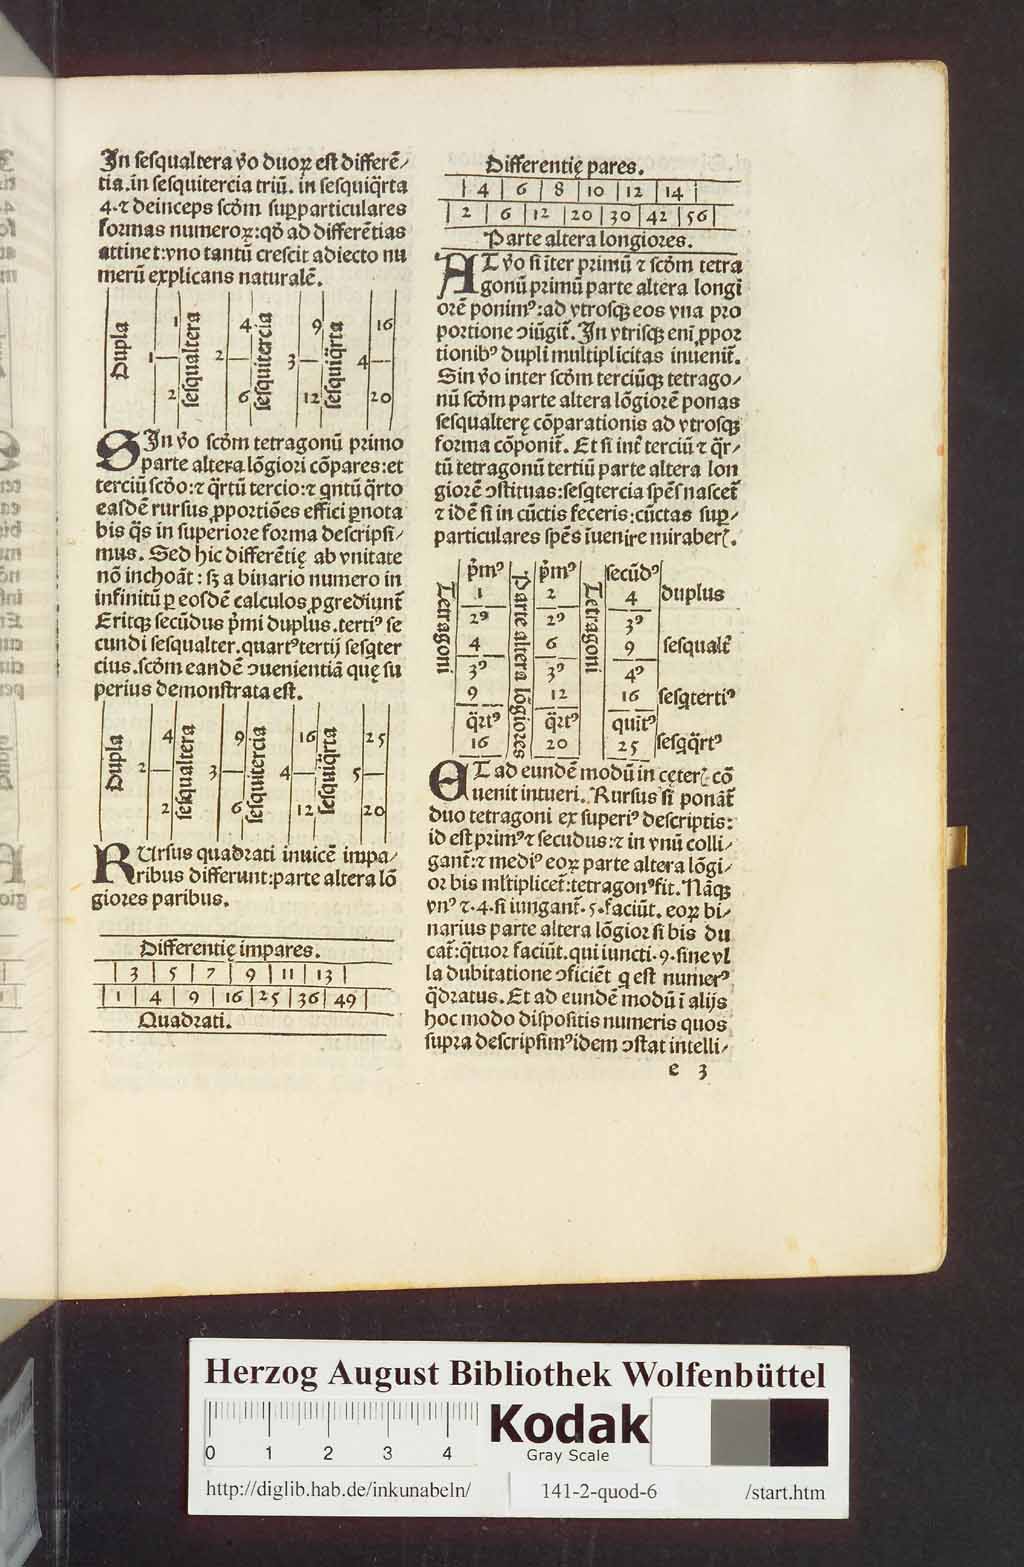 In seſqualtera v̊o duoꝝ eſt differē/
tia.in seſquitercia triū. in ſeſquiq̈rta
4.⁊ deinceps ſcōm ſuꝑparticulares
formas numeroꝝ: qō ad differētias
attinet: vno tantū creſcit adiecto nu
merū explicans naturalē.
Dupla 1 ſeſqualtera 4 ſeſquitercia 9 ſeſquiq̈rta 16
1 2 3 4
2 6 12 20
SIn v̊o ſcōm tetragonū primo
parte altera lōgiori cōpares: et
terciū ſcōo: ⁊ q̈rtū tercio: ⁊ qntū q̈rto
eaſdē rurſus ꝓportiōes effici ꝑnota
bis q̈s in ſuperiore forma deſcripſi/
mus. Sed hic differētię ab vnitate
nō inchoāt: ſꝫ a binario numero in
infinitū ꝑ eoſdē calculos ꝓgrediunt᷑
Eritqꝫ ſecūdus p̄mi duplus. tertiꝰ ſe
cundi ſeſqualter. quartꝰ tertij ſeſqter
cius. ſcōm eandē ↄuenientiā quę ſu
perius demonſtrata eſt.
Dupla 4 ſeſqualtera 9 ſeſquitercia 16 ſeſquiq̈rta 25
2 3 4 5
2 6 12 20
RUrſus quadrati inuicē impa/
ribus differunt: parte altera lō
giores paribus.
Differentię impares.
3 | 5 | 7 | 9 | 11 | 13
1 | 4 | 9 | 16 | 25 | 36 | 49
Quadrati.
Differentię pares.
4 | 6 | 8 | 10 | 12 | 14
2 | 6 | 12 | 20 | 30 | 42 | 56
Parte altera longiores.
AT v̊o ſi īter primū ⁊ ſcōm tetra
gonū primū parte altera longi
orē ponimꝰ: ad vtroſqꝫ eos vna pro
portione ↄiūgit᷑. In vtriſqꝫ eni ꝓpor
tionibꝰ dupli multiplicitas inuenit᷑.
Sin v̊o inter ſcōm terciūqꝫ tetrago/
nū ſcōm parte altera lōgiorē ponas
ſeſqualterę cōparationis ad vtroſqꝫ
forma cōponit᷑. Et ſi int᷑ terciū ⁊ q̈r/
tū tetragonū tertiū parte altera lon
giorē ↄſtituas: ſeſqtercia ſpēs naſcet᷑
⁊ idē ſi in cūctis feceris: cūctas ſuꝑ/
particulares ſpēs īuenire miraberꝭ.
Tetragoni p̄mꝰ Parte altera lōgiores p̄mꝰ Tetragoni ſecūdꝰ
1 2 4 duplus
2ꝰ 2ꝰ 3ꝰ
4 6 9 ſeſqualt᷑
3ꝰ 3ꝰ 4ꝰ
9 12 16 ſeſqtertiꝰ
q̈rtꝰ q̈rtꝰ quītꝰ
16 20 25 ſeſqq̈rtꝰ
ET ad eundē modū in ceterꝭ cō
uenit intueri. Rurſus ſi ponāt᷑
duo tetragoni ex ſuperiꝰ deſcriptis:
id eſt primꝰ ⁊ ſecūdus: ⁊ in vnū colli/
gant᷑: ⁊ mediꝰ eoꝝ parte altera lōgi/
or bis ml̄tiplicet᷑: tetragonꝰ fit. Nāqꝫ
vnꝰ ⁊.4.ſi iungant᷑.5.faciūt. eoꝝ bi/
narius parte altera lōgior ſi bis du
cat᷑: q̈tuor faciūt. qui iuncti.9.ſine vl
la dubitatione ↄficiēt q eſt numerꝰ
q̈dratus. Et ad eundē modū ī alijs
hoc modo diſpoſitis numeris quos
ſupra deſcripſimꝰ idem ↄſtat intelli/
e 3
Herzog August Bibliothek Wolfenbüttel
0 1 2 3 4
Kodak
Gray Scale
http://diglib.hab.de/inkunabeln/ 141-2-quod-6 /start.htm